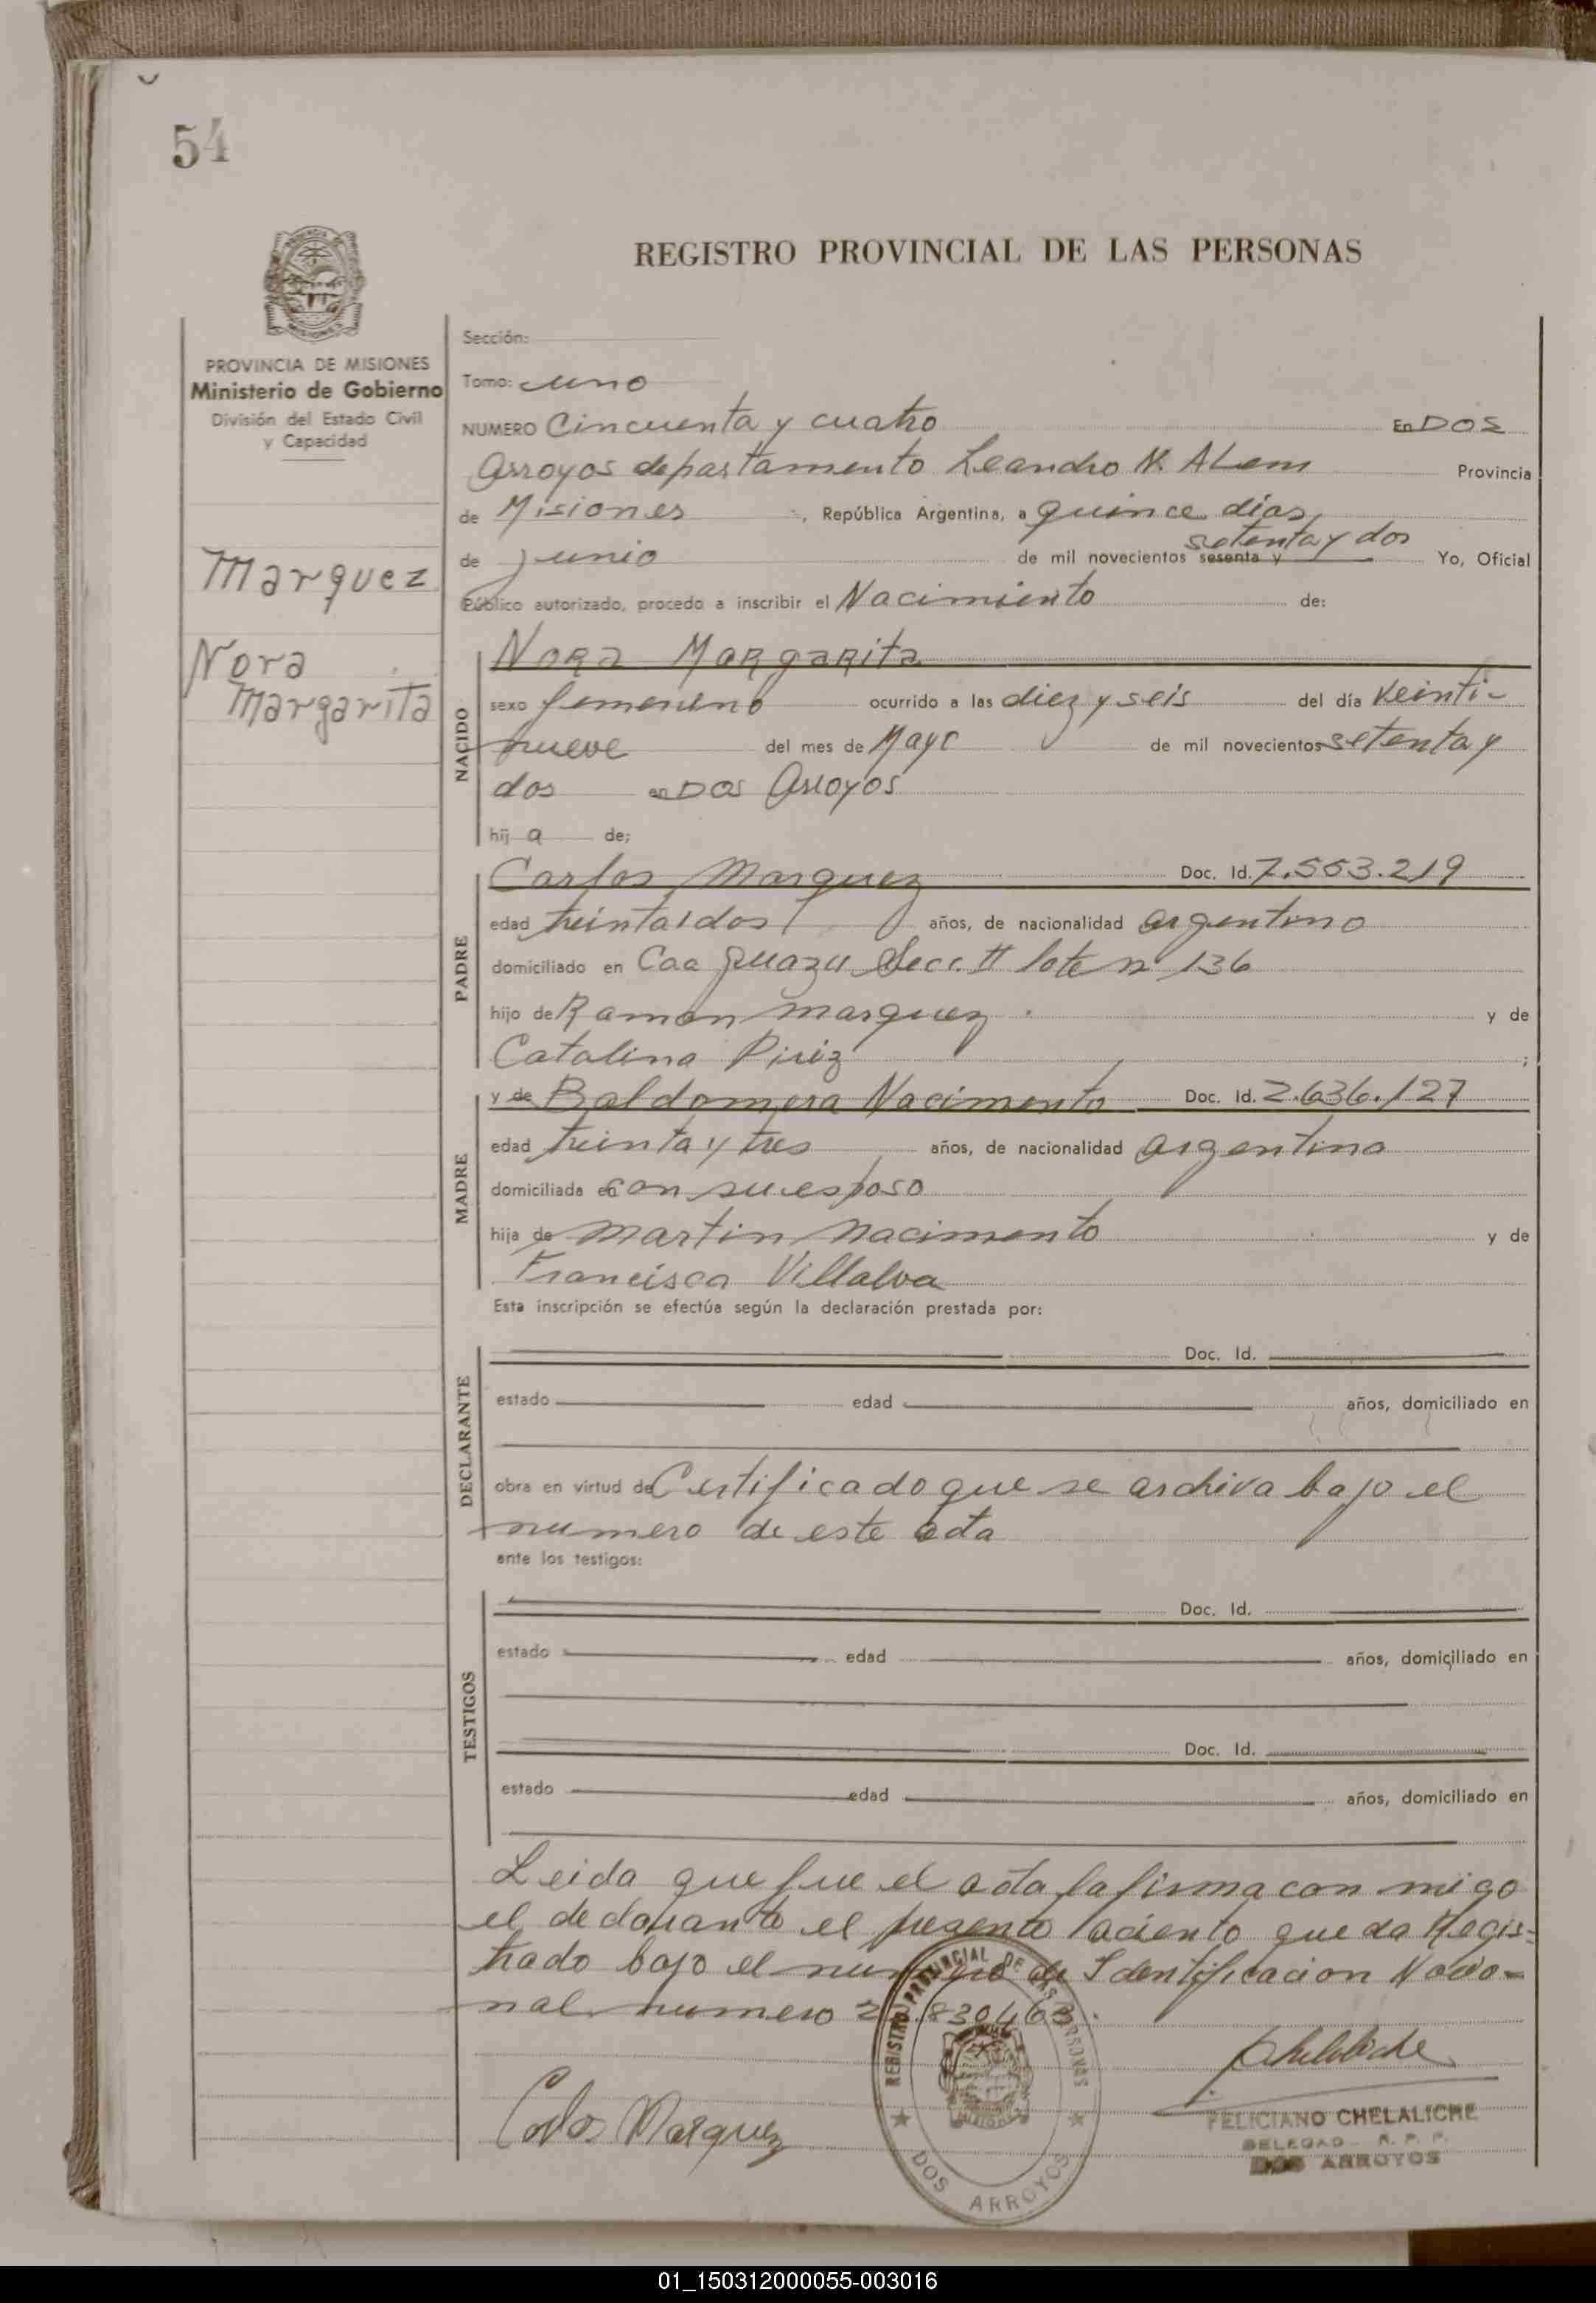 54
REGISTRO PROVINCIAL DE LAS PERSONAS
PROVINCIA DE MISIONES
Ministerio de Gobierno
División del Estado Civil
y Capacidad
Marquez
Nora
Margarita
Sección:
Tomo: uno
NUMERO Cincuenta y cuatro En DOS
Arroyos departamento Leandro N. ALem Provincia
de Misiones, República Argentina, a quince días
de junio de mil novecientos sesenta y setenta y dos Yo, Oficial
Público autorizado, procedo a inscribir el Nacimiento de:
NACIDO
Nora Margarita
sexo femenino ocurrido a las diez y seis del día Veinti-
nueve del mes de Mayo de mil novecientos setenta y
dos en Dos Arroyos
hij a de;
PADRE
Carlos Marquez Doc. Id. 7.553.219
edad treintaidos años, de nacionalidad argentino
domiciliado en Caa guazu Secc. II lote n 136
hijo de Ramon Marquez y de
Catalina Piriz ;
MADRE
y de Baldomera Nacimento Doc. Id. 2.636.127
edad treinta y tres años, de nacionalidad argentina
domiciliada en con su esposo
hija de Martin Nacimento y de
Francisca Villalva
Esta inscripción se efectúa según la declaración prestada por:
DECLARANTE
Doc. Id.
estado edad años, domiciliado en
obra en virtud de Certificado que se archiva bajo el
numero de este acta
ante los testigos:
TESTIGOS
Doc. Id.
estado edad años, domiciliado en
Doc. Id.
estado edad años, domiciliado en
Leida que fue el acta la firma con migo
el declarante el presente aciento queda Regis=
trado bajo el numero de Identificacion Nacio-
nal numero
REGISTRO PROVINCIAL DE LAS PERSONAS
DOS ARROYOS
Carlos Marquez
Chelaliche
FELICIANO CHELALICHE
DELEGAD R. P. P.
DOS ARROYOS
01_150312000055-003016